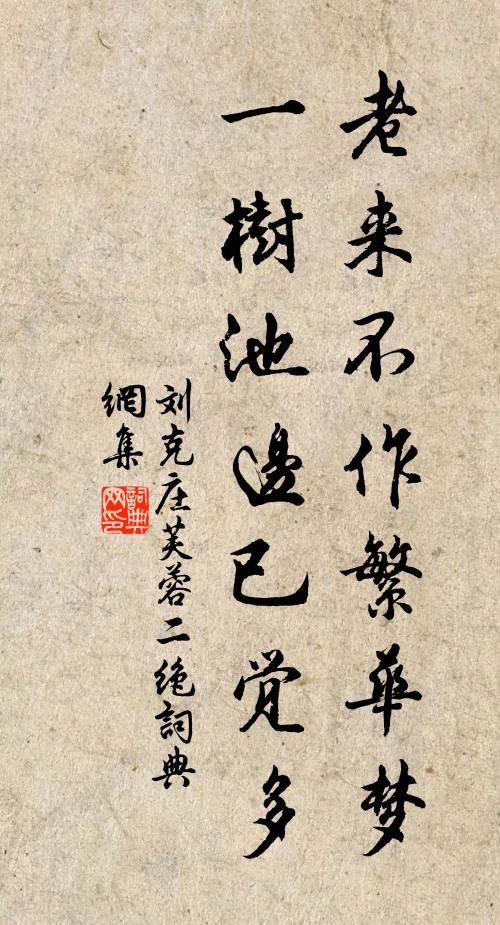 老来不作繁華梦
一樹池邊已觉多
刘克庄芙蓉二绝詞典
網集
詞典
网印